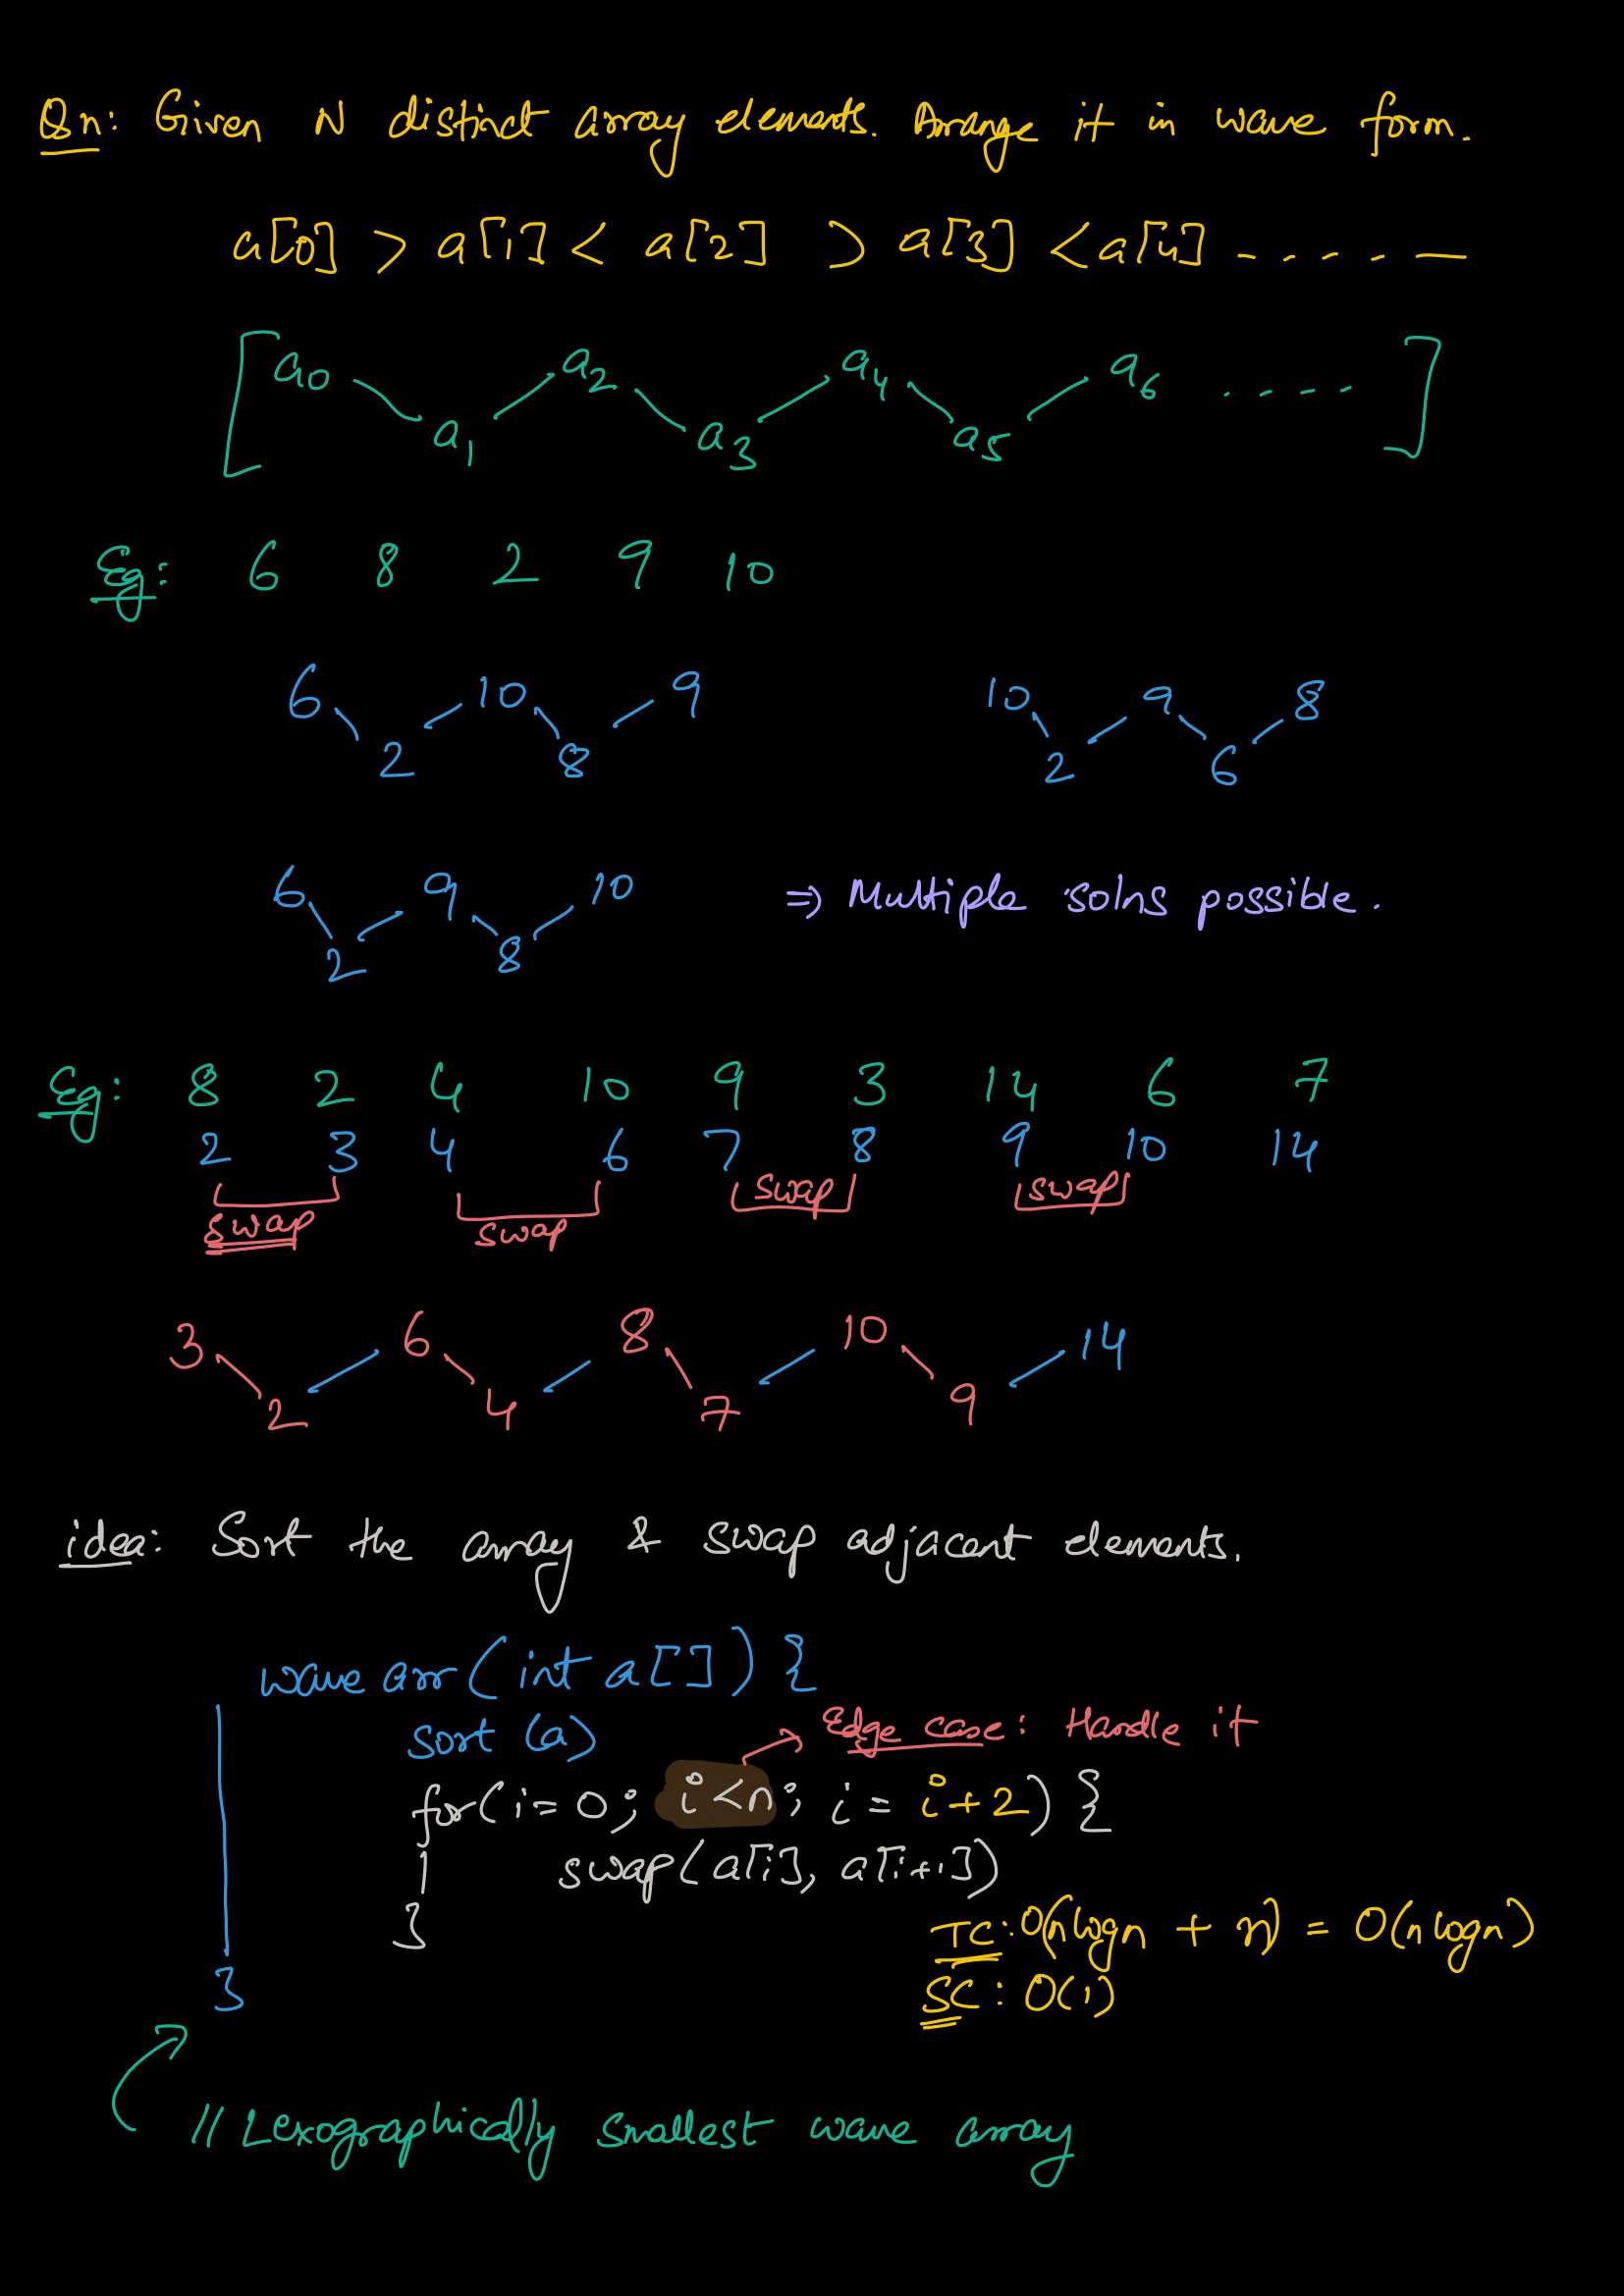 Qn: Given N distinct array elements. Arrange it in wave form.
a[0] > a[1] < a[2] > a[3] < a[4] - - - - —
[a0 a1 a2 a3 a4 a5 a6 ....]
Eg: 6 8 2 9 10
6 2 10 8 9 10 2 9 6 8
6 2 9 8 10 ⇒ Multiple solns possible.
Eg: 8 2 4 10 9 3 14 6 7
2 3 4 6 7 8 9 10 14
swap swap swap swap
3 2 6 4 8 7 10 9 14
idea: Sort the array & swap adjacent elements.
wave arr(int a[]) {
Sort (a) Edge case: Handle it
for(i=0; i<n; i=i+2) {
swap(a[i], a[i+1])
}
TC: O(nlogn + n) = O(nlogn)
}
SC: O(1)
// Lexographically smallest wave array